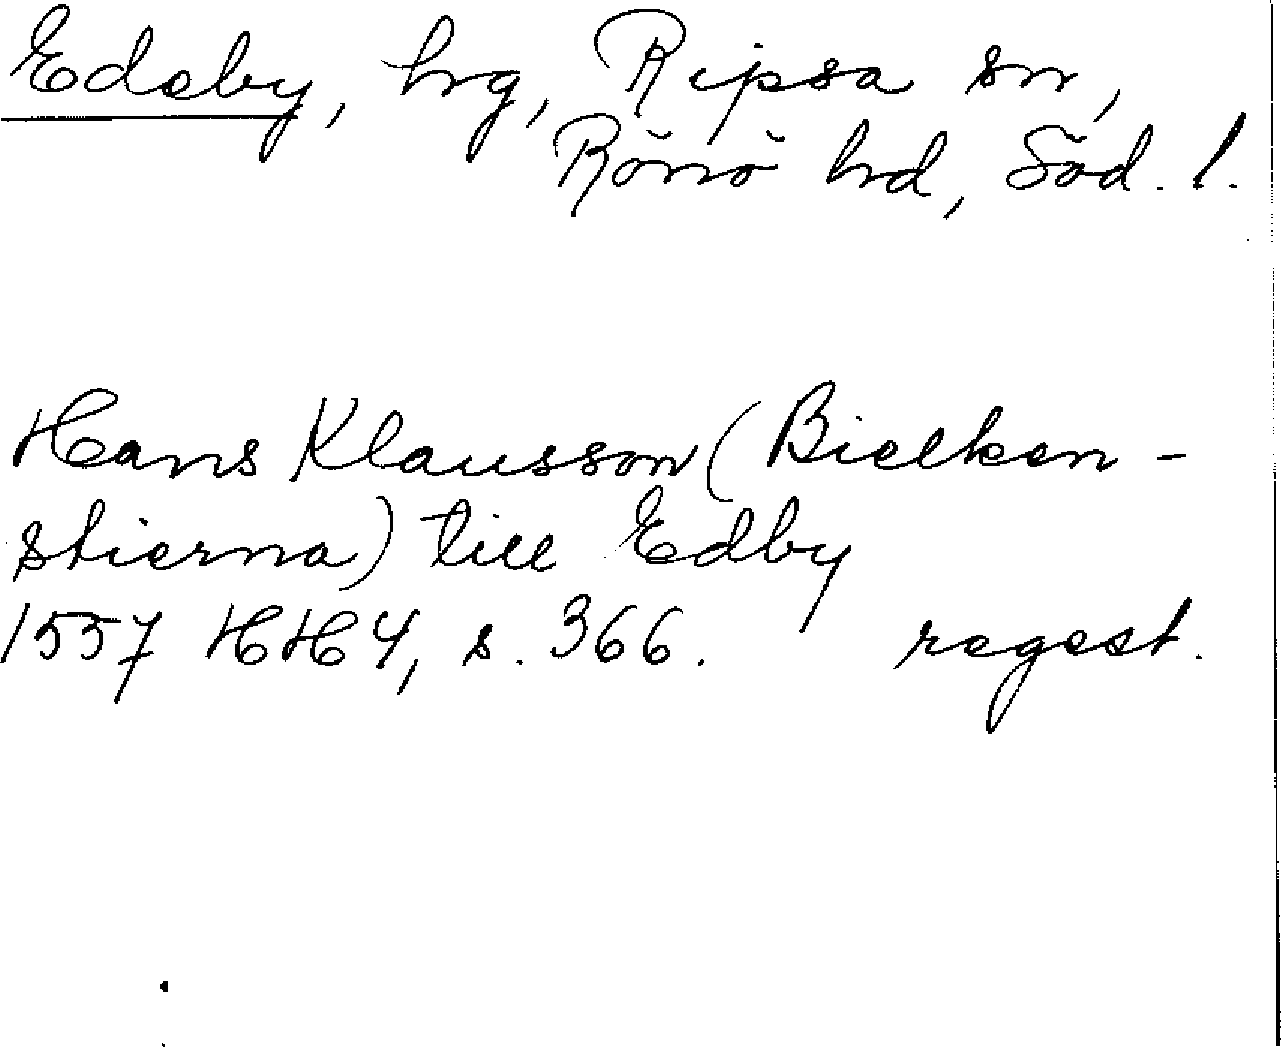 Edeby, hrg, Ripsa sn,
Rönö hrd, Söd. l.
Hans Klausson (Bielken-
stierna) till Edby
1557 HH4, s. 366. regest.